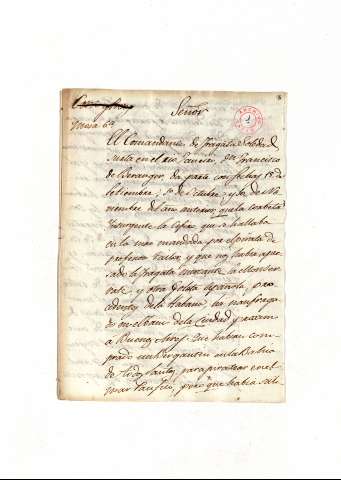 Señor
1
Mesa 6ª
El Comandante de fragata Soledad
surta en el rio Janeiro, Dn Francisco
de Beranger, da parte con fechas 15 de
Setiembre, 30 de Octubre, y 30 de No-
viembre del año anterior, que la corbeta
Insurgente la que se hallaba
en la mar mandada por el pirata de
profesion Taylor, y que ha apre-
sado la fragata mercante la
y otra Goleta Española, pro-
cedentes de la Habana, ha naufraga-
do en el Banco de la Ciudad y
á Buenos Ayres. Que habian com-
prado un Bergantin en la Bahia
de todos Santos, para piratear en el
mar Pacifico, pero que habia sali-